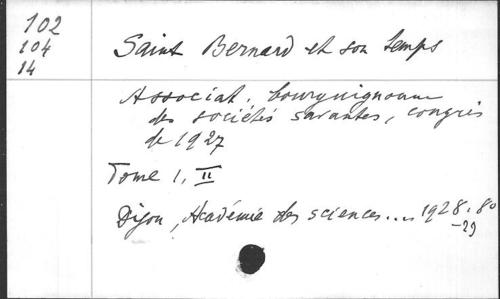 102
104
14
Saint Bernard et son temps
Associat. bourguignonne
des sociétés savantes, congrès
de 1927
Tome I, II
Dijon, Académie des sciences... 1928. 8o
-29